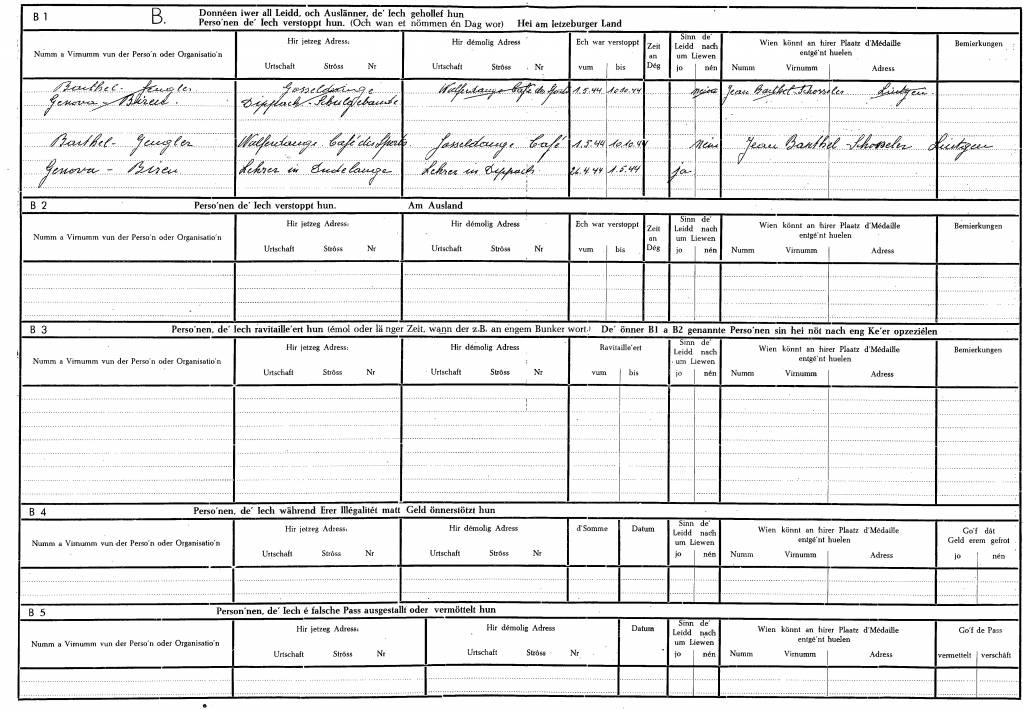 B 1 B. Donnéen iwer all Leidd, och Auslänner, de' Iech gehollef hun
Perso'nen de' Iech verstoppt hun. (Och wan et nömmen én Dag wor) Hei am letzeburger Land
Numm a Virnumm vun der Perso'n oder Organisatio'n Hir jetzeg Adress: Hir démolig Adress Ech war verstoppt Zeit an Dég Sinn de' Leidd nach um Liewen Wien könnt an hirer Plaatz d'Médaille entgé'nt huelen Bemierkungen
Urtschaft Ströss Nr Urtschaft Ströss Nr vum bis jo nén Numm Virnumm Adress
Barthel- Gengler Gosseldange Walferdange Café des Sports 1.5.44 10.10.44 nein Jean Barthel-Schosseler Lintgen
Genova - Biren. Dippach Schulgebäude
Barthel- Gengler Walferdange Café des Sports Gosseldange Café 1.5.44 10.10.44 nein Jean Barthel-Schosseler Lintgen
Genova - Biren Lehrer in Lehrer in Dippach 26.4.44 1.5.44 ja
B 2 Perso'nen de' Iech verstoppt hun. Am Ausland
Numm a Virnumm vun der Perso'n oder Organisatio'n Hir jetzeg Adress: Hir démolig Adress Ech war verstoppt Zeit an Dég Sinn de' Leidd nach um Liewen Wien könnt an hirer Plaatz d'Médaille entgé'nt huelen Bemierkungen
Urtschaft Ströss Nr Urtschaft Ströss Nr vum bis jo nén Numm Virnumm Adress
B 3 Perso'nen, de' Iech ravitaille'ert hun (émol oder länger Zeit, wann der z.B. an engem Bunker wort.) De' önner B1 a B2 genannte Perso'nen sin hei nöt nach eng Ke'er opzeziélen
Numm a Virnumm vun der Perso'n oder Organisatio'n Hir jetzeg Adress: Hir démolig Adress Ravitaille'ert Sinn de' Leidd nach um Liewen Wien könnt an hirer Plaatz d'Médaille entgé'nt huelen Bemierkungen
Urtschaft Ströss Nr Urtschaft Ströss Nr vum bis jo nén Numm Virnumm Adress
B 4 Perso'nen, de' Iech während Erer Illégalitét matt Geld önnerstötzt hun
Numm a Virnumm vun der Perso'n oder Organisatio'n Hir jetzeg Adress: Hir démolig Adress d'Somme Datum Sinn de' Leidd nach um Liewen Wien könnt an hirer Plaatz d'Médaille entgé'nt huelen Go'f dát Geld erem gefrot
Urtschaft Ströss Nr Urtschaft Ströss Nr jo nén Numm Virnumm Adress jo nén
B 5 Person'nen, de' Iech é falsche Pass ausgestallt oder vermöttelt hun
Numm a Virnumm vun der Perso'n oder Organisatio'n Hir jetzeg Adress: Hir démolig Adress Datum Sinn de' Leidd nach um Liewen Wien könnt an hirer Plaatz d'Médaille entgé'nt huelen Go'f de Pass
Urtschaft Ströss Nr Urtschaft Ströss Nr jo nén Numm Virnumm Adress vermettelt verschäft